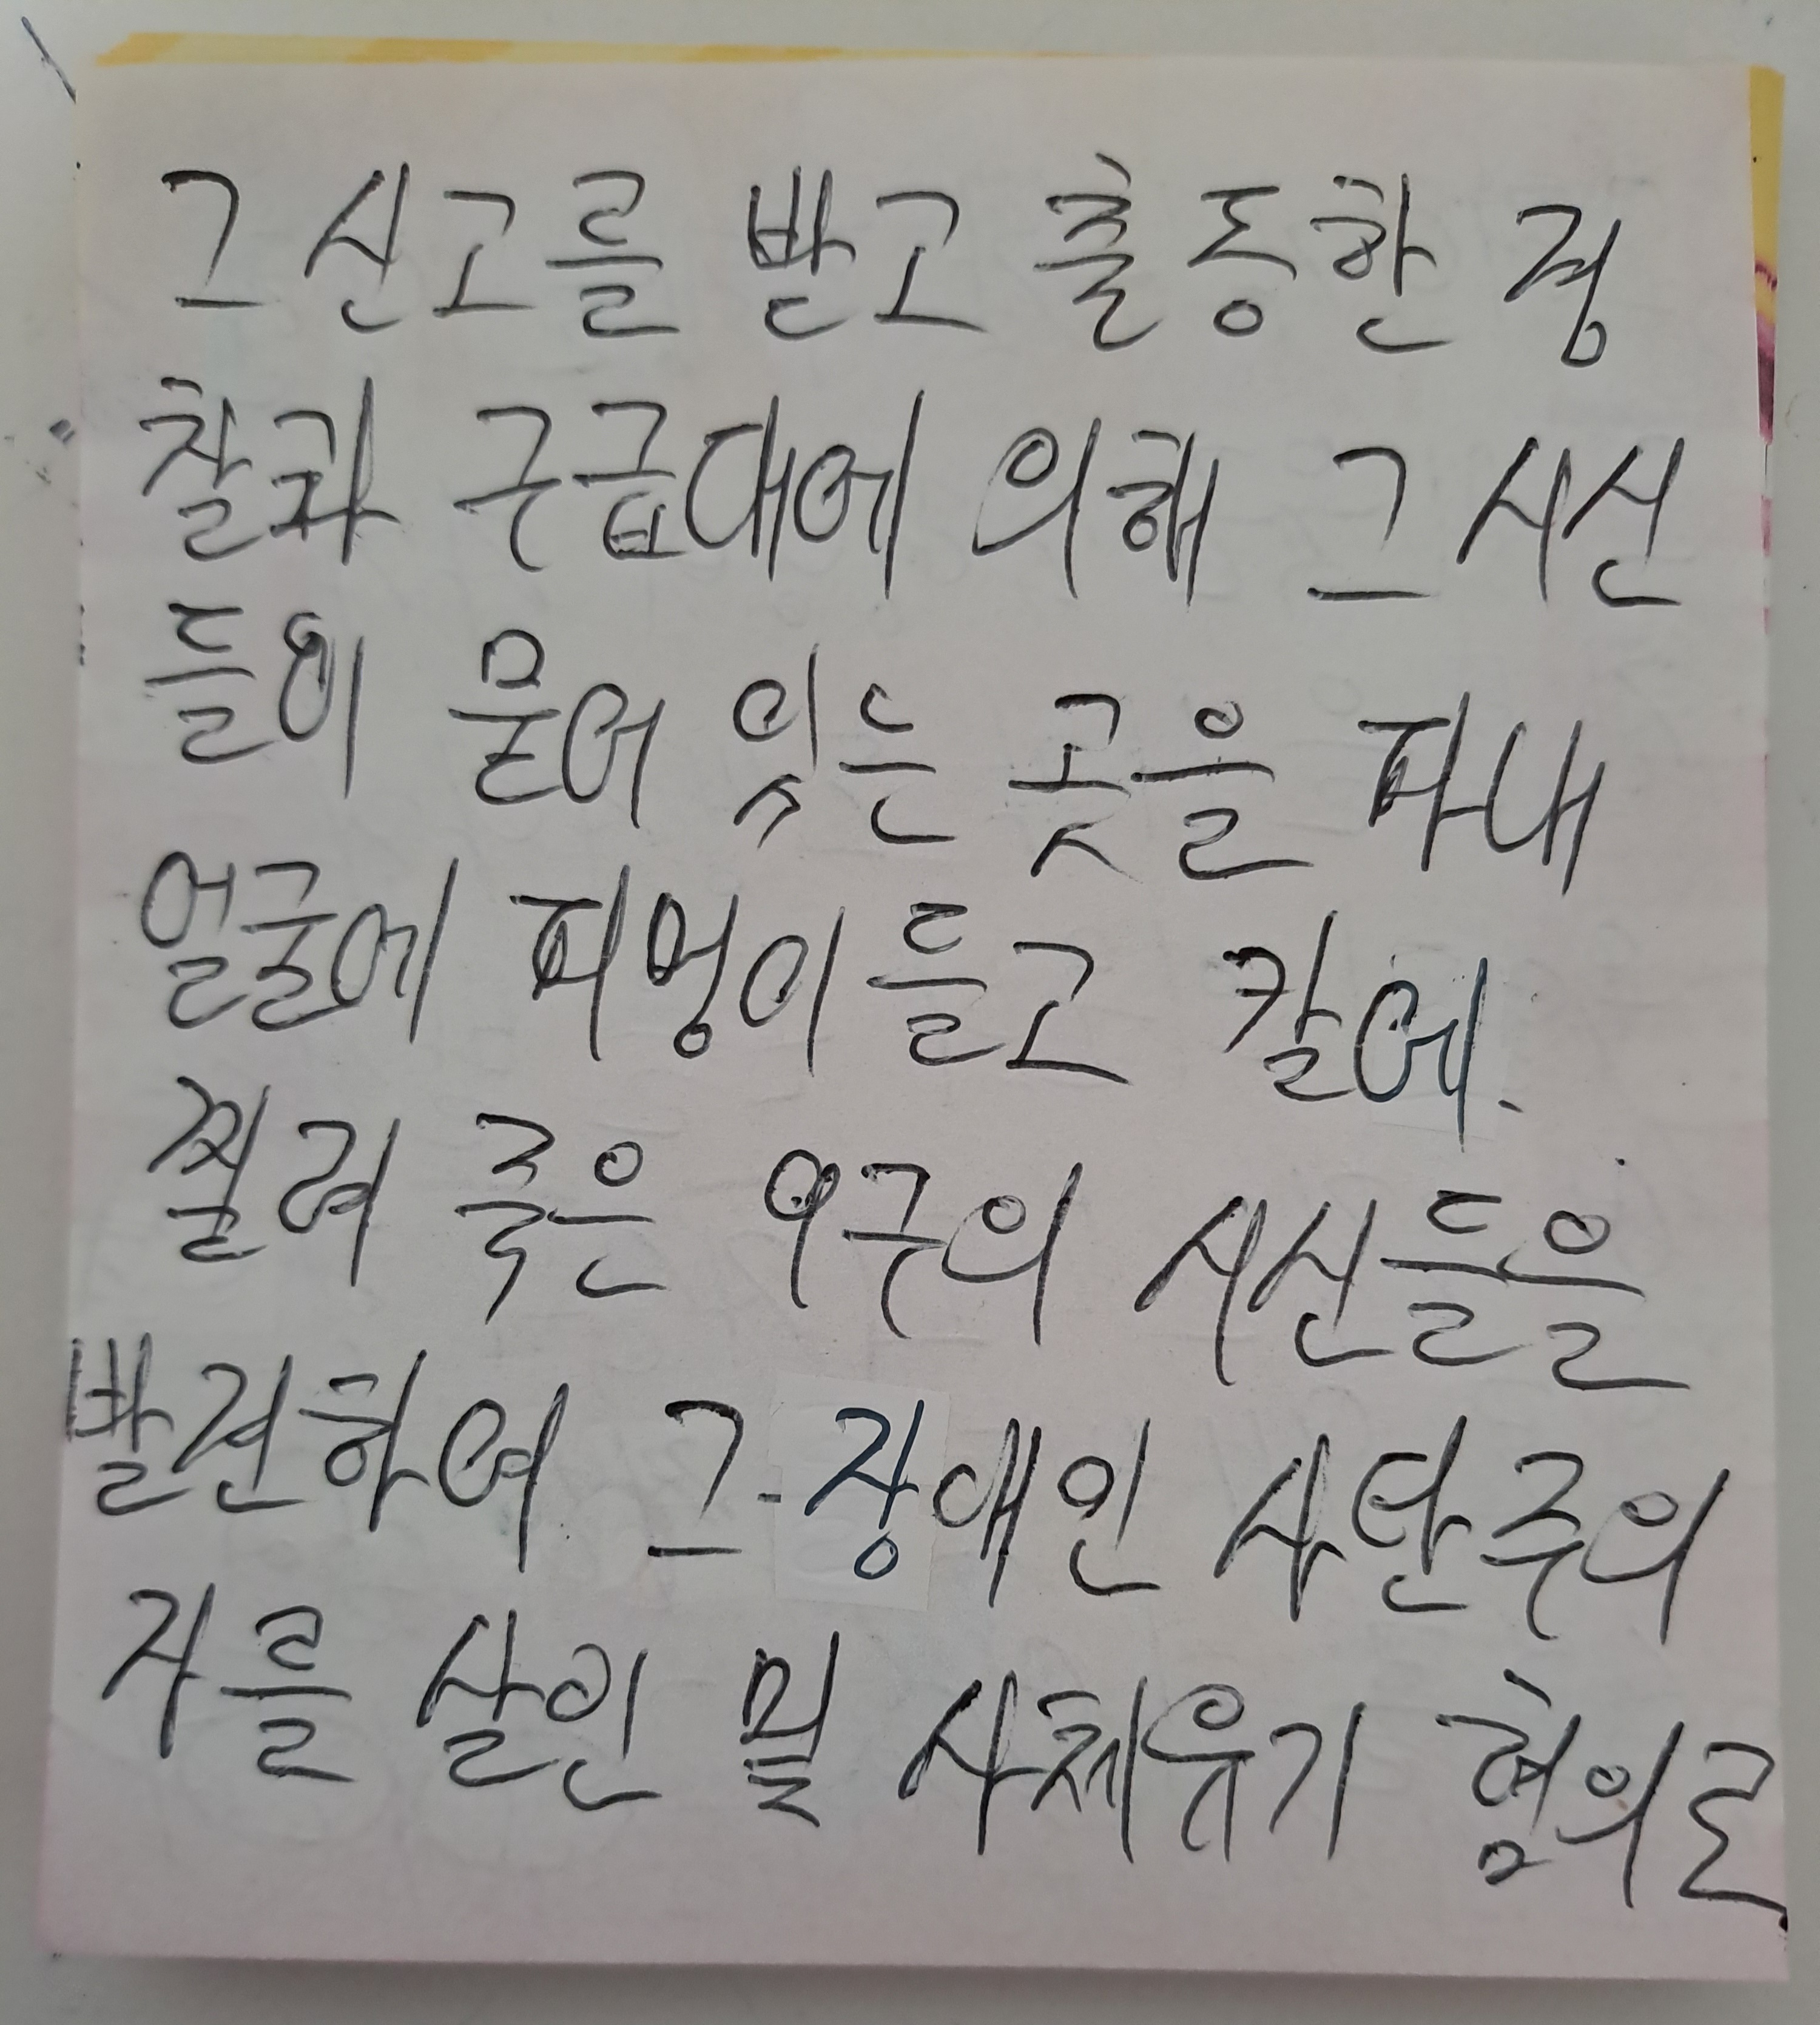 그 신고를 받고 출동한 경
찰과 구급대에 의해 그 시신
들이 묻어 있는 곳을 파내
얼굴에 피멍이 들고 칼에
찔려 죽은 9구의 시신들을
발견하여 그 장애인 사탄주의
자를 살인 및 사체유기 혐의로